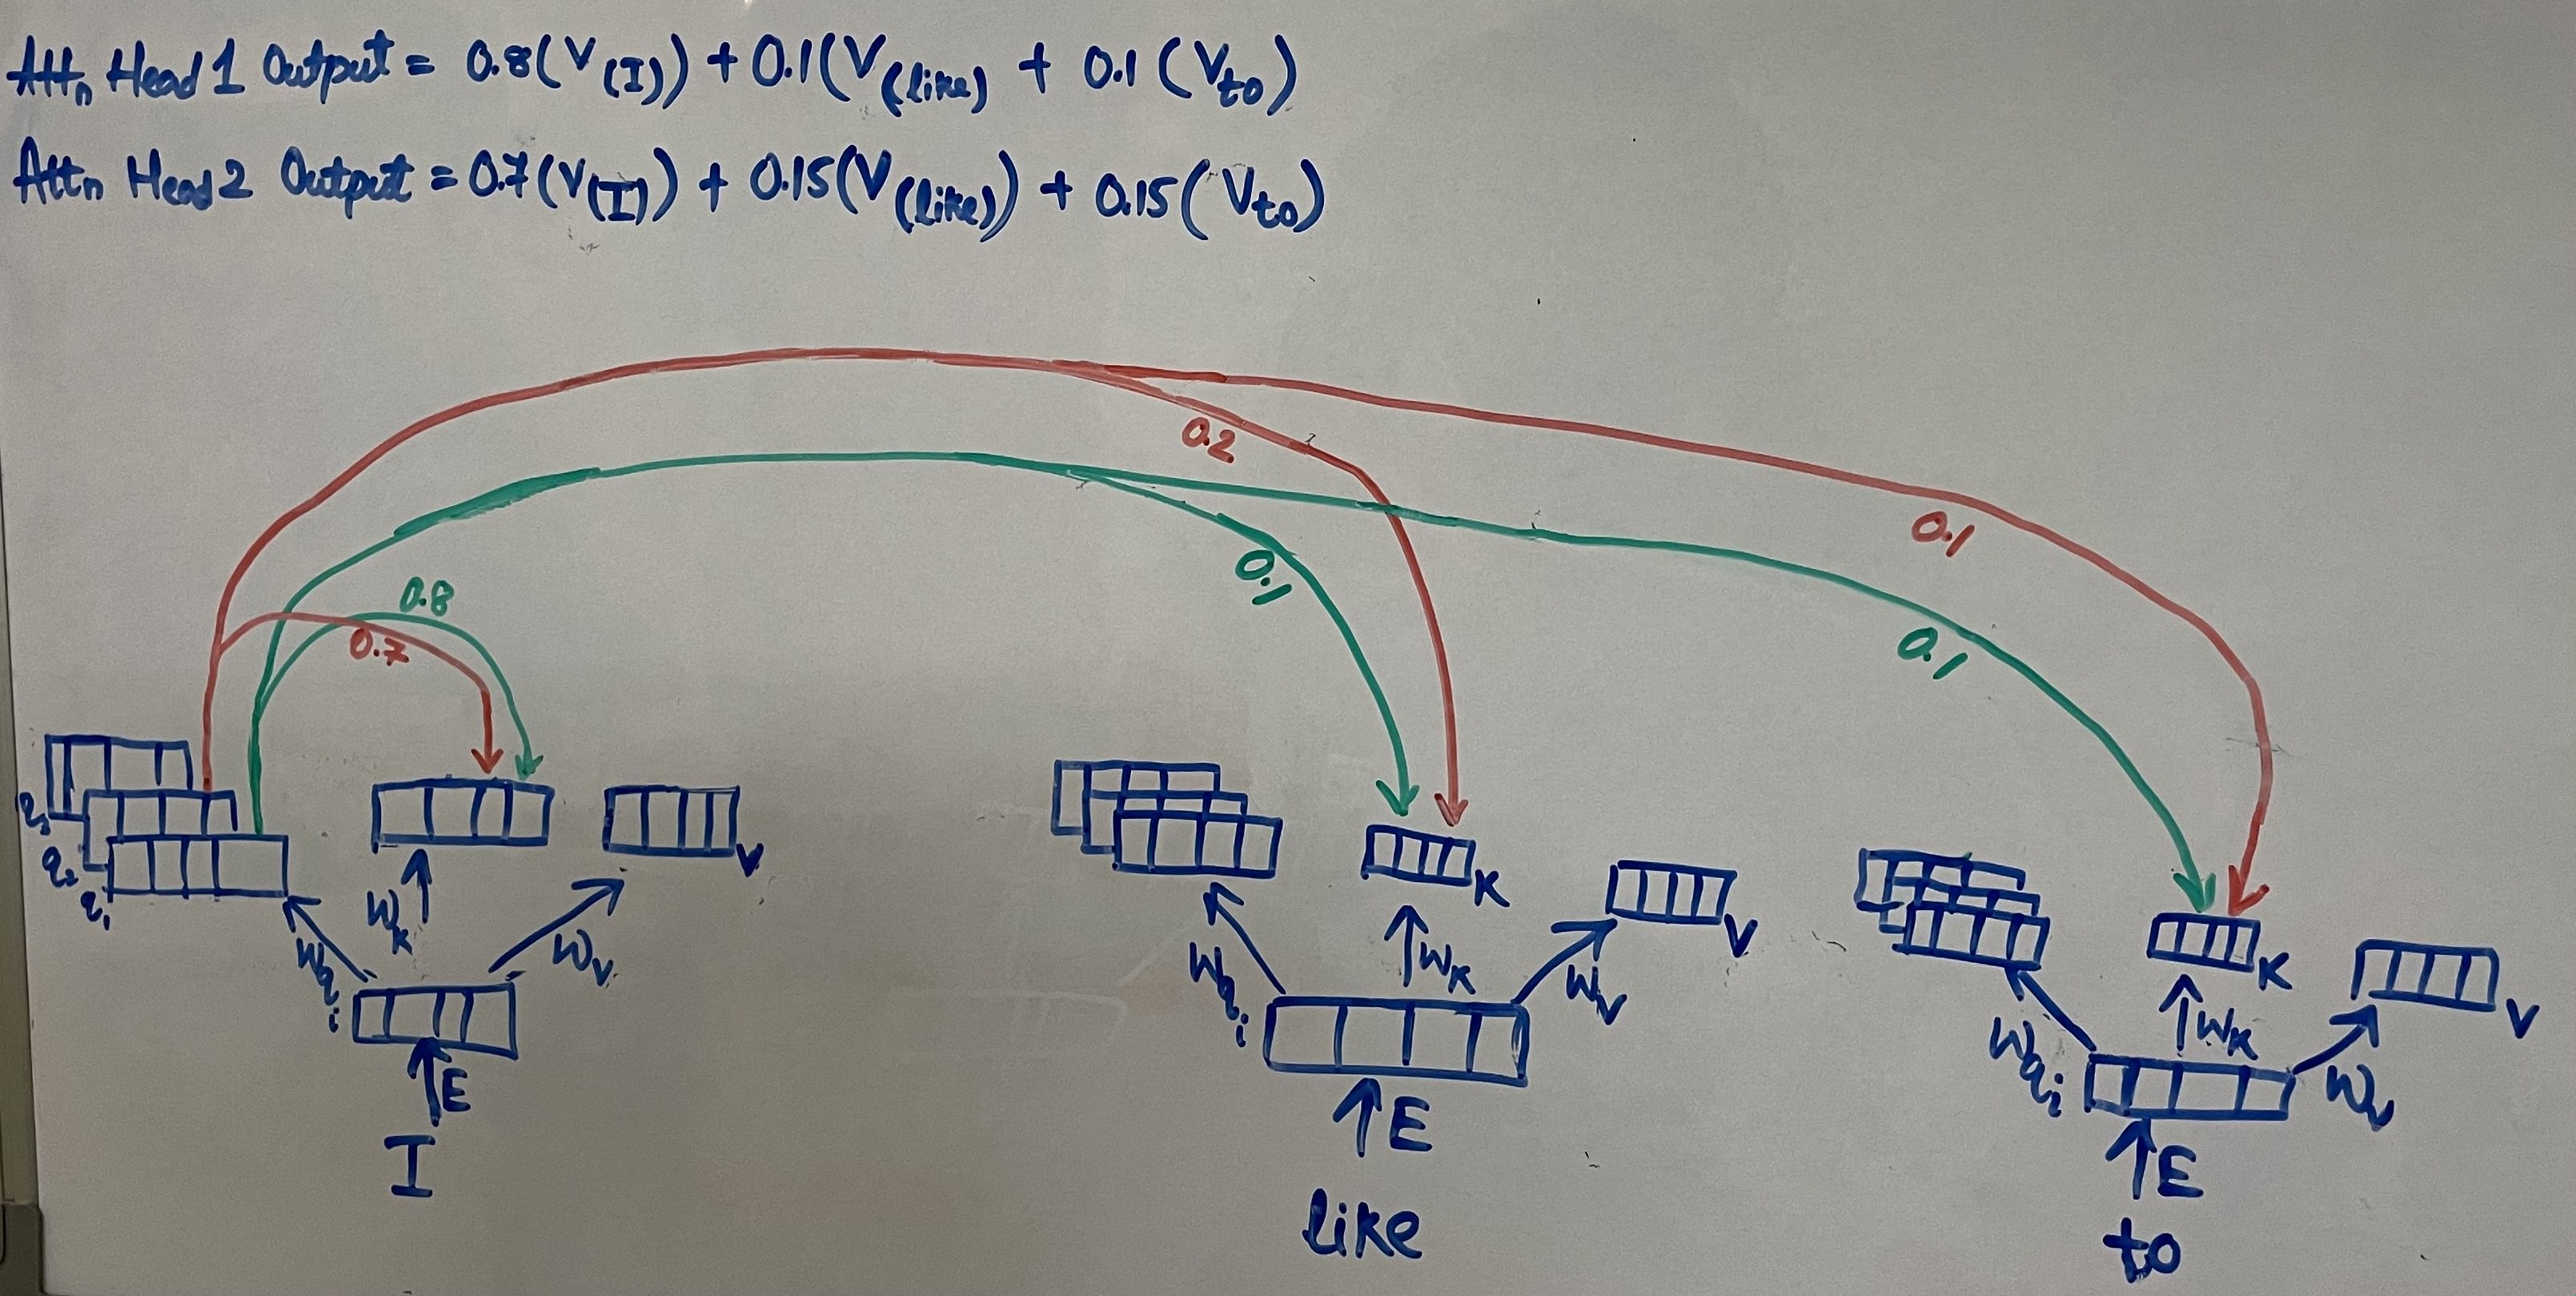 Attn Head 1 Output = 0.8(V(I)) + 0.1(V(like) + 0.1 (Vto)
Attn Head 2 Output = 0.7(V(I)) + 0.15(V(like)) + 0.15(Vto)
0.2
0.1
0.1
0.8
0.7
0.1
q3
q2
q1
V
K
V
K
V
Wqi
WK
WV
Wqi
WK
WV
Wqi
WK
WV
E
E
E
I
like
to